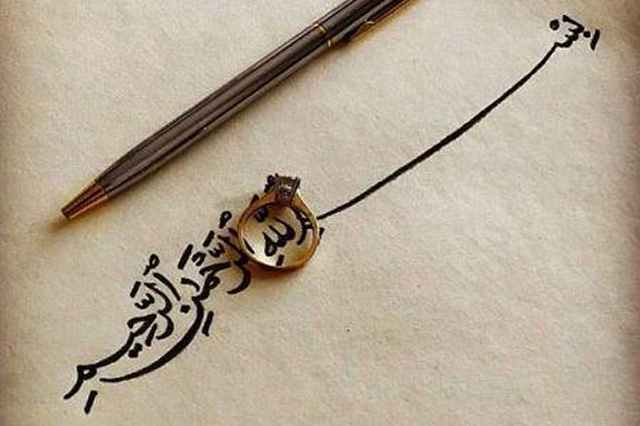 بسم الله الرَّحْمَنِ الرَّحِيمِ